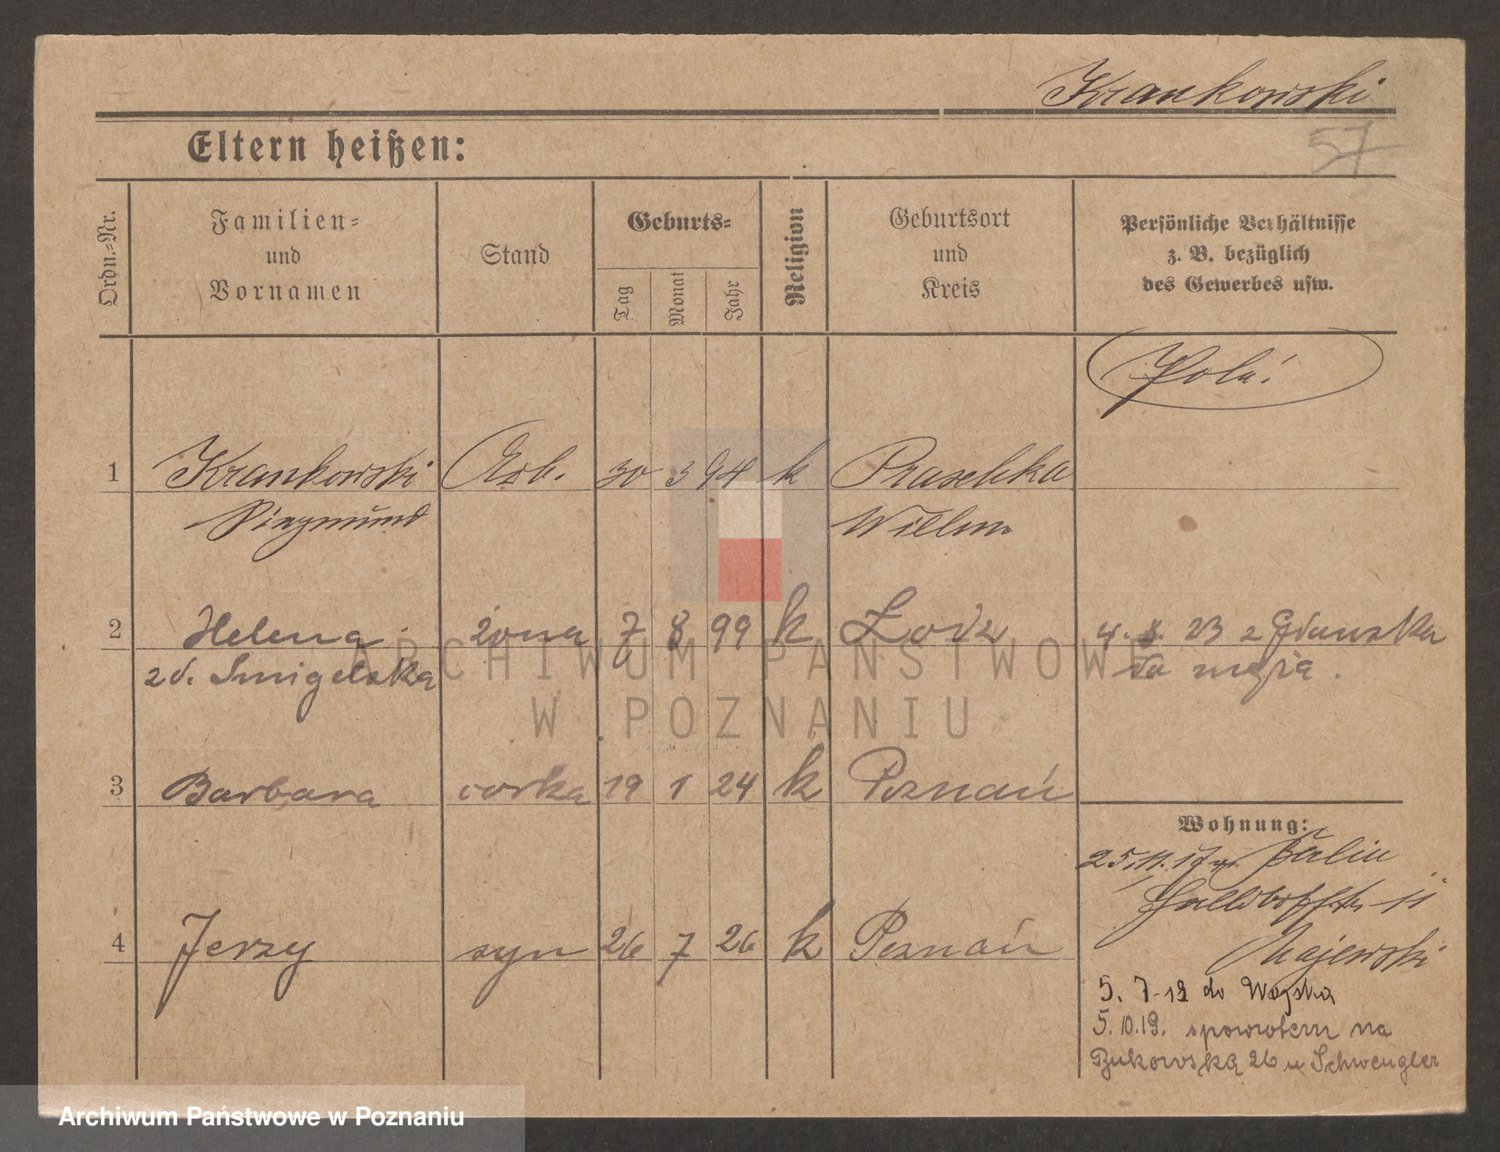 Krankowski
57
Eltern heißen:
Ordn.-Nr.
Familien-
und
Vornamen
Stand
Geburts-
Tag
Monat
Jahr
Religion
Geburtsort
und
Kreis
Persönliche Verhältnisse
z. B. bezüglich
des Gewerbes usw.
1 Krankowski Arb. 30 3 94 k Praschka
Siegmund Wielun
2 Helena żona 7 8 99 k Lodz 4. 8. 23 z Gdanska
zd. Smigelska do męża.
3 Barbara corka 19 1 24 k Poznań
Wohnung:
25.11.17 Berlin
11
Majewski
4 Jerzy syn 26 7 26 k Poznań
5. 7-19 do Wojska
5.10.19. spowrotem na
Bukowską 26 u Schwengler
ARCHIWUM PAŃSTWOWE
W POZNANIU
Archiwum Państwowe w Poznaniu